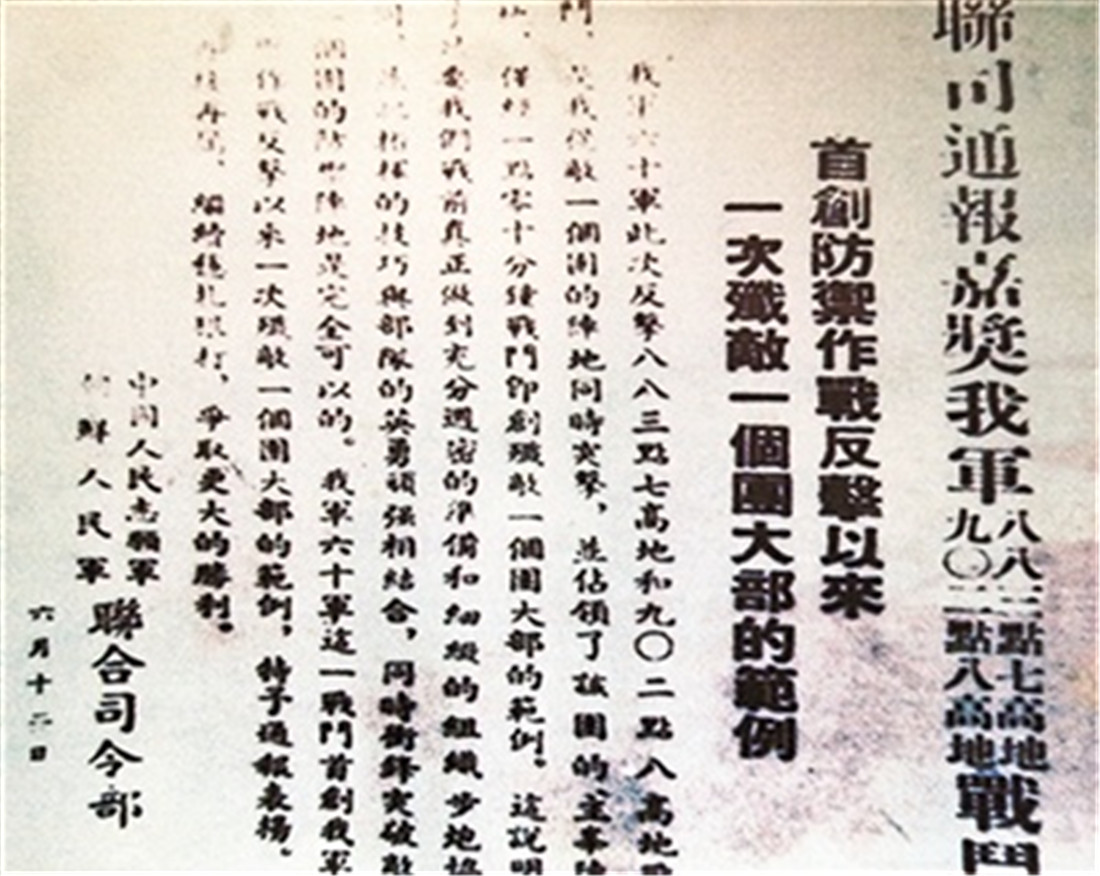 聯司通報嘉獎我軍八八三點七高地九〇二點八高地戰鬥
首創防禦作戰反擊以來
一次殲敵一個團大部的範例
我軍六十軍此次反擊八八三點七高地和九〇二點八高地
鬥,我僅敵一個團的陣地同時突擊,並佔領了該團的主峯陣
僅經一點零十分鐘戰鬥即創殲敵一個團大部的範例。這說明
要我們戰前真正做到充分週密的準備和細緻的組織步地協
的技巧與部隊的英勇頑强相結合,同時衝鋒突破敵
個團的防禦陣地是完全可以的。我軍六十軍這一戰鬥首創我軍
作戰反擊以來一次殲敵一個團大部的範例,特予通報表揚。
再接再厲,繼續穩扎狠打,爭取更大的勝利。
中國人民志願軍
朝鮮人民軍
聯合司令部
六月十二日